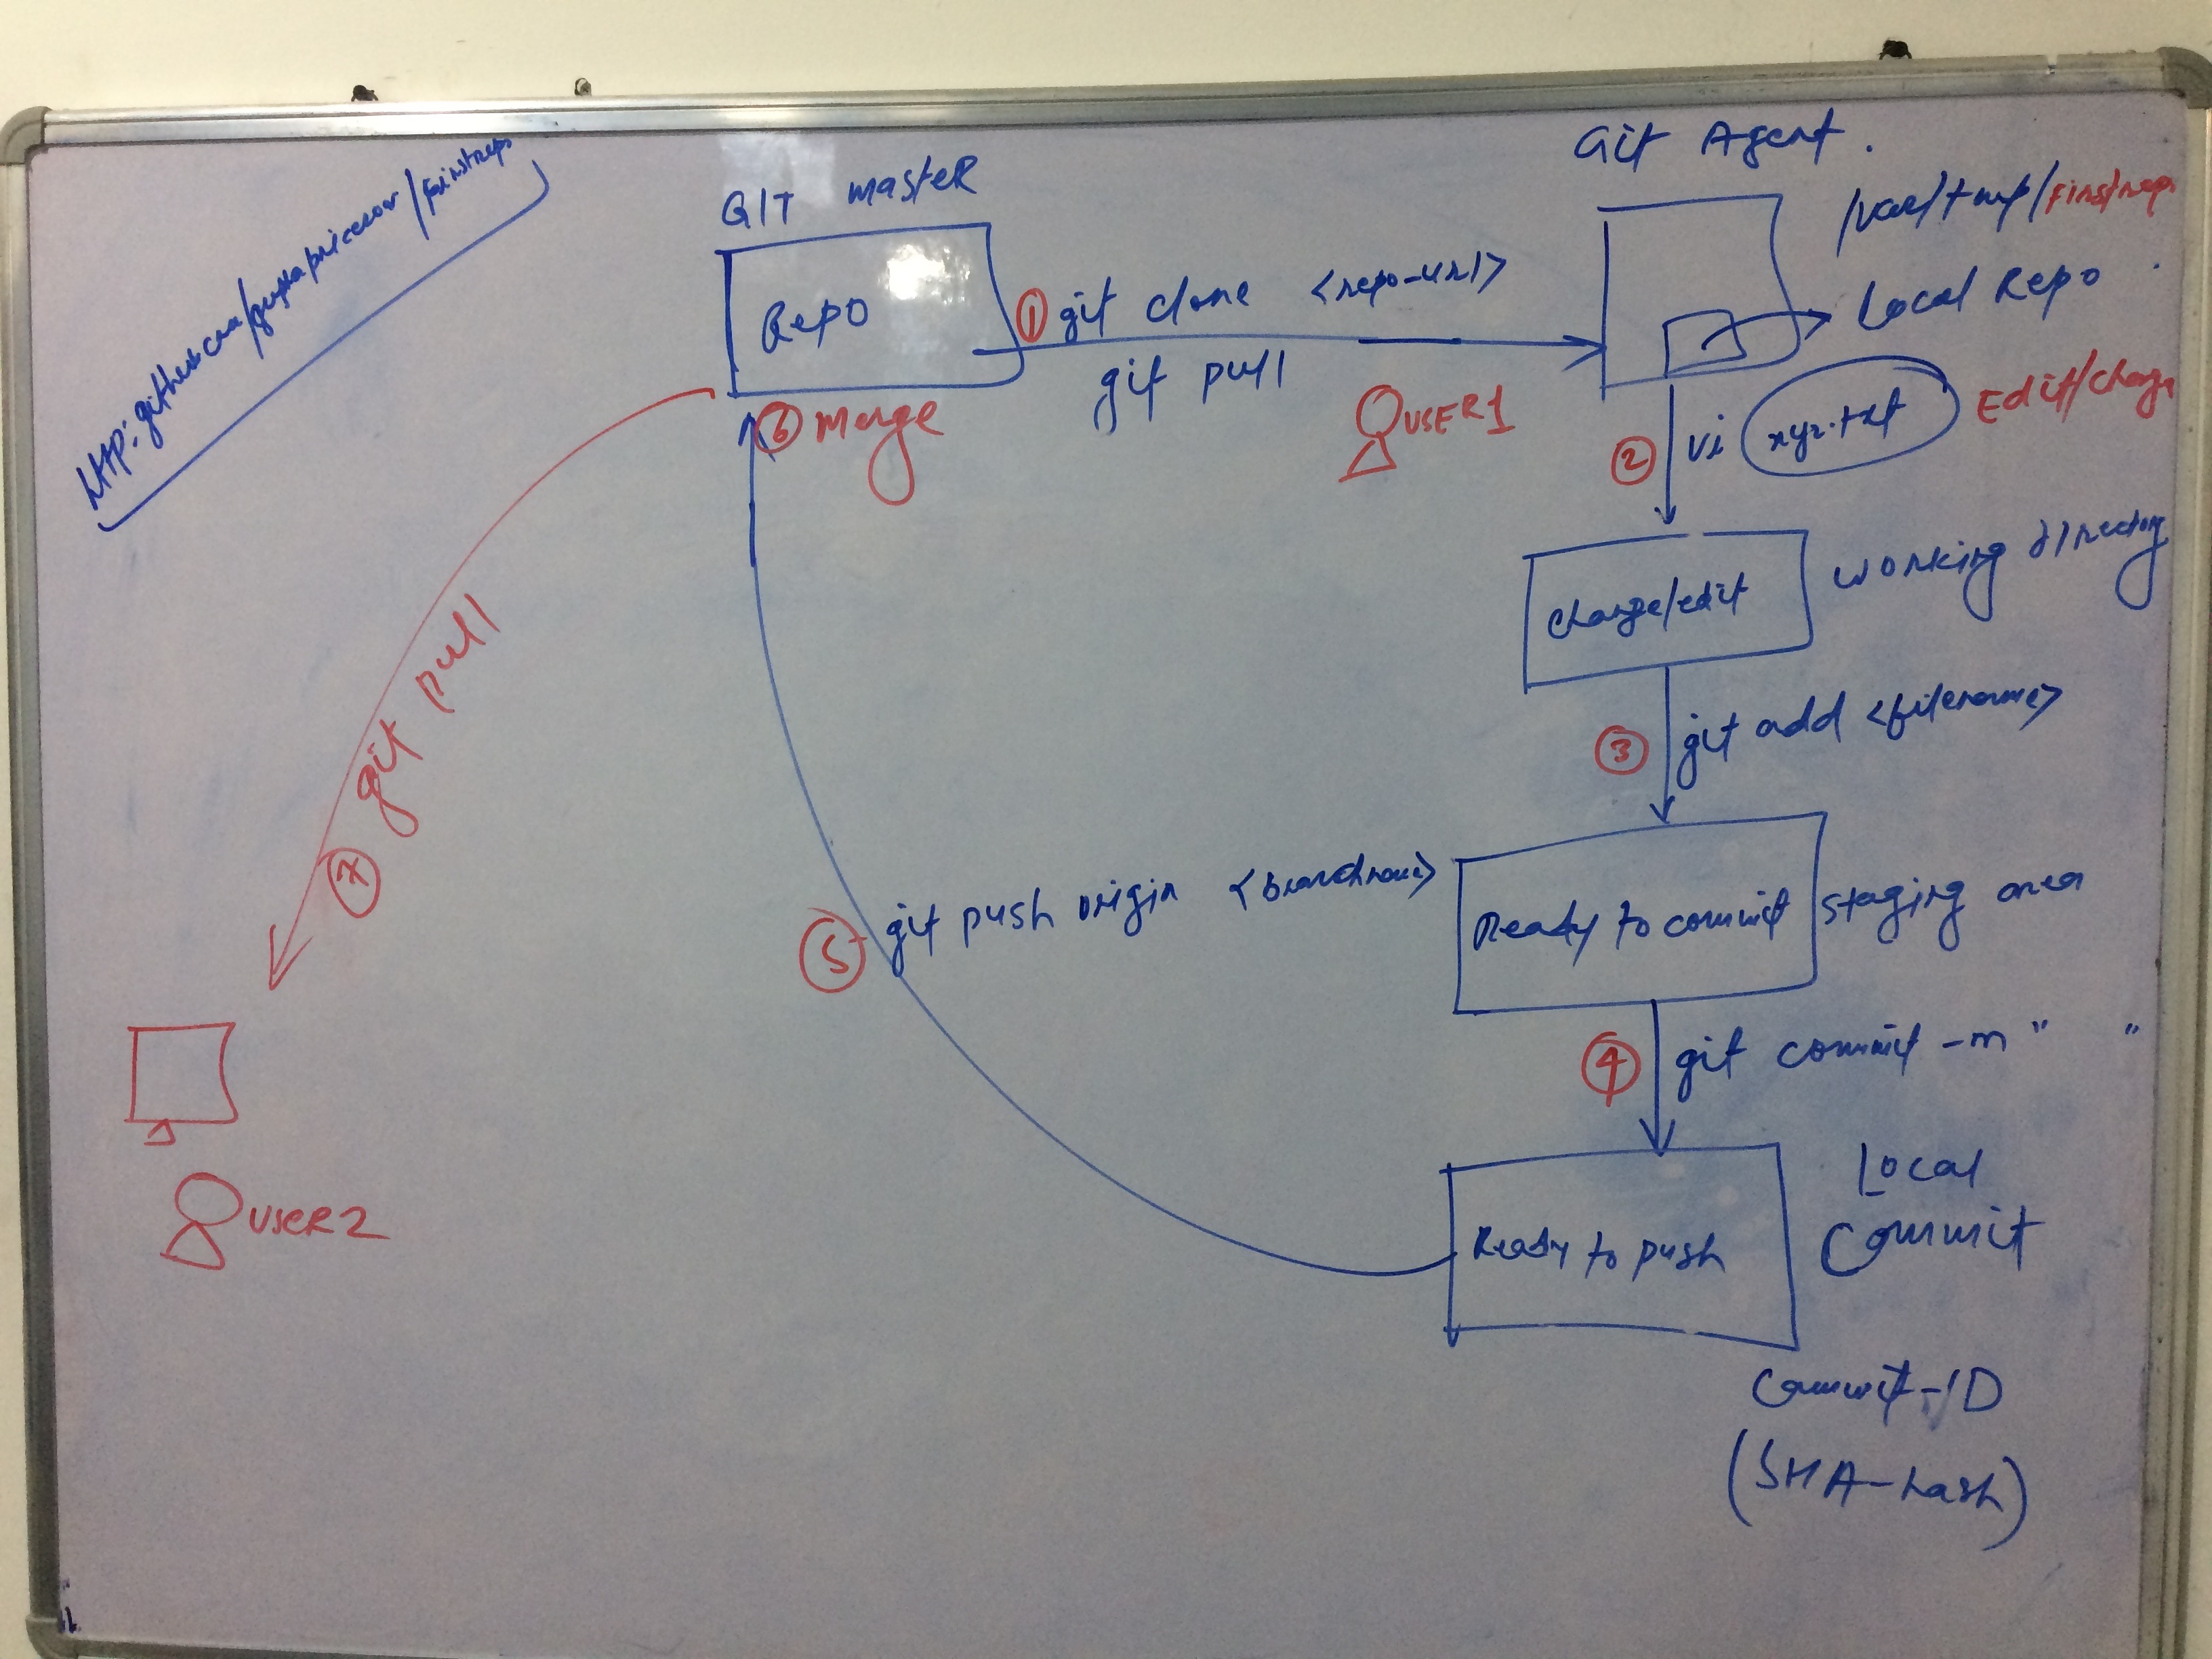 GIT master
Repo
① git clone <repo-url>
git pull
USER1
Git Agent.
/var/tmp/firstrepo
Local Repo
② vi xyz.txt Edit/change
change/edit
working directory
③ git add <filename>
Ready to commit
staging area
④ git commit -m " "
Ready to push
Local
Commit
Commit-ID
(SHA-hash)
⑤ git push origin <branchname>
⑥ Merge
⑦ git pull
USER2